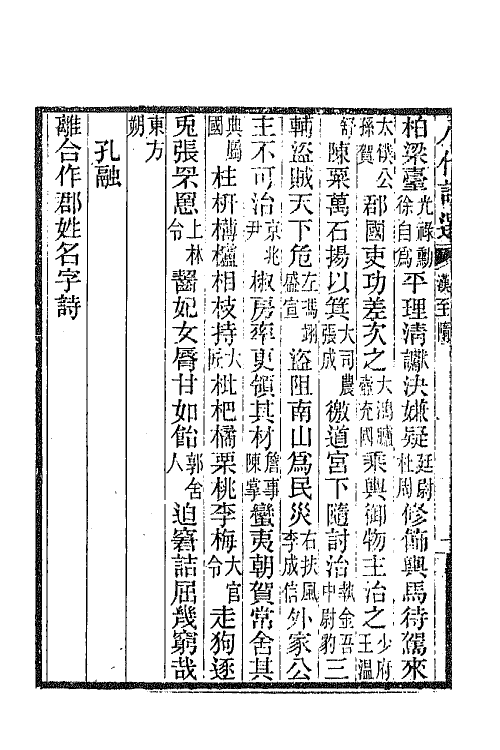 柏梁臺光祿勳徐自為平理淸讞決嫌疑廷尉杜周修飾輿馬待駕來
太僕公孫賀郡國吏功差次之大鴻臚壺充國乘輿御物主治之少府王溫
舒陳粟萬石揚以箕大司農張成徼道宮下隨討治執金吾中尉豹三
輔盜賊天下危左馮翊盛宣盜阻南山爲民災右扶風李成信外家公
主不可治京兆尹椒房率更領其材詹事陳掌蠻夷朝賀常舍其
典屬國柱枅欂櫨相枝持大匠枇杷橘栗桃李梅大官令走狗逐
兔張罘罳上林令齧妃女脣甘如飴郭舍人迫窘詰屈幾窮哉
東方朔
孔融
離合作郡姓名字詩